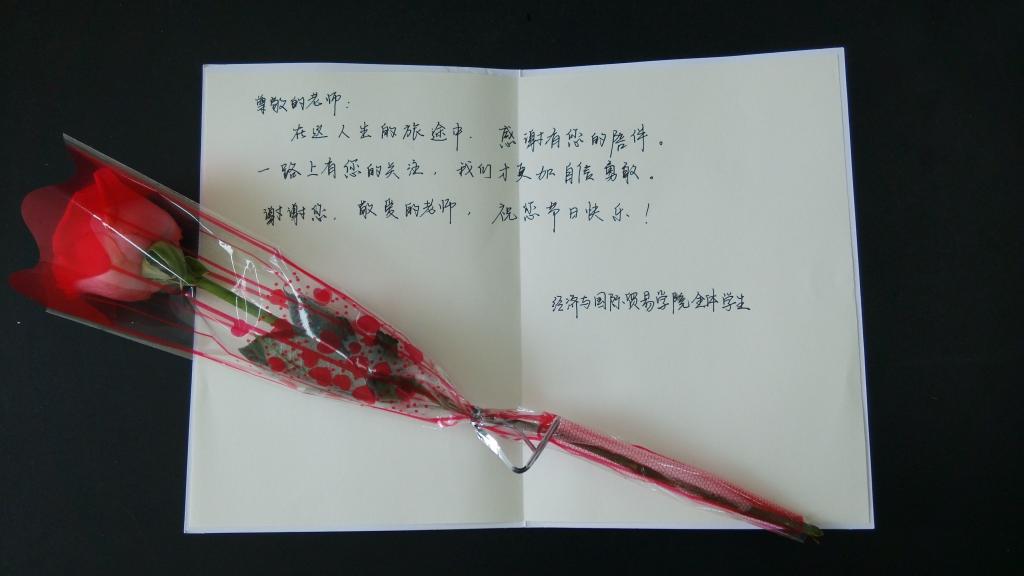 尊敬的老师:
在这人生的旅途中,感谢有您的陪伴。
一路上有您的关注,我们才更加自信勇敢。
谢谢您,敬爱的老师,祝您节日快乐!
经济与国际贸易学院全体学生